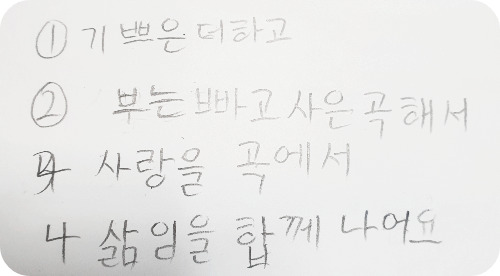 ① 기쁘은 더하고
② 부는 빠고 사은 곡해서
4 사랑을 곡에서
4 삶임을 합께 나어요